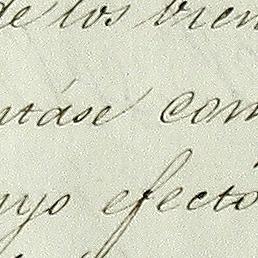 de los bien
ntáse com
uyo efecto